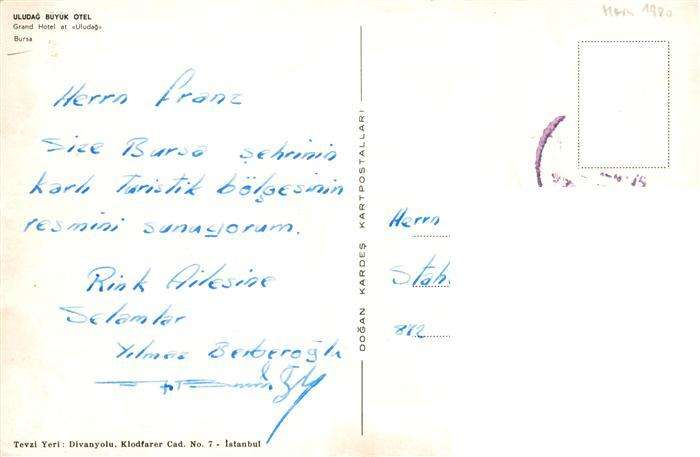 ULUDAĞ BÜYÜK OTEL
Grand Hotel at «Uludağ»
Bursa
Herrn Franz
Size Bursa şehrinin
karlı Turistik bölgesinin
resmini sunuyorum.
Rink Ailesine
Selamlar
Yılmaz Berberoğlu
DOĞAN KARDEŞ KARTPOSTALLARI
1980
Herrn
Stah
Tevzi Yeri: Divanyolu, Klodfarer Cad. No. 7 - İstanbul